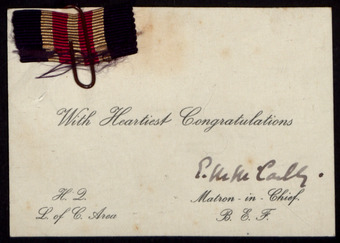 With Heartiest Congratulations
E. M. McCarthy.
H. Q.
L. of C. Area
Matron-in-Chief.
B. E. F.